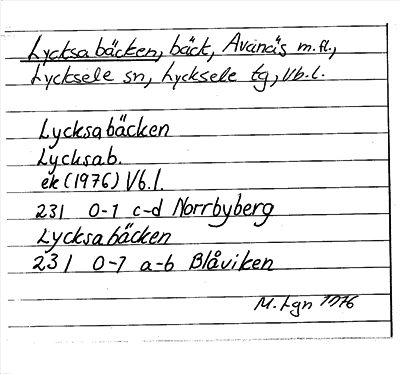 Lycksabäcken, bäck, Avanäs m.fl.,
Lycksele sn, Lycksele tg, Vb.l.
Lycksabäcken
Lycksab.
ek (1976) Vb.l.
231 0-1 c-d Norrbyberg
Lycksabäcken
231 0-1 a-b Blåviken
M. Lgn 1976